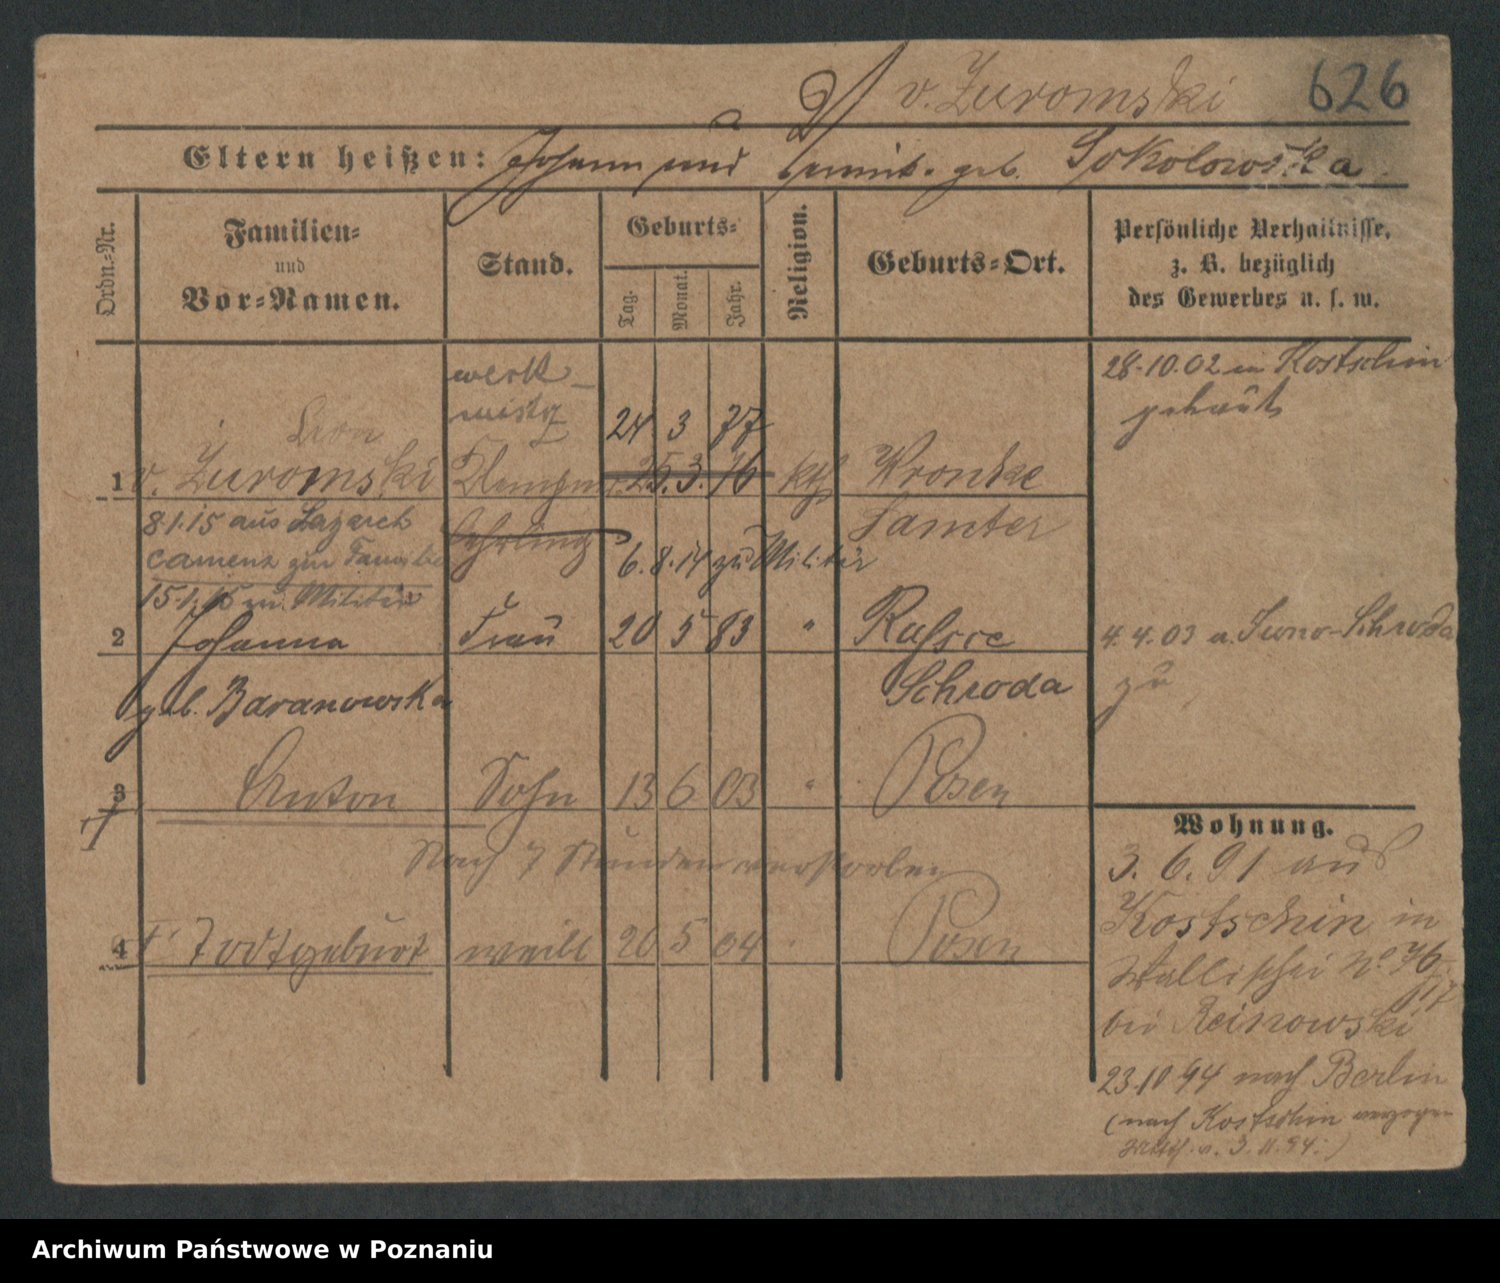 v. Zuromski 626
Eltern heißen: Johann und geb. Sokolowska
Ordn.-Nr.
Familien-
und
Vor-Namen.
Stand.
Geburts-
Tag.
Monat.
Jahr.
Religion.
Geburts-Ort.
Persönliche Verhältnisse,
z. B. bezüglich
des Gewerbes u. s. w.
Leon
werk-
24 3 77
28.10.02 in Kostschin
getraut
1 v. Zuromski 25.3.76 kth Wronke
8.1.15 aus Lazaret
Lehrling
Samter
camenz zur Familie
6.8.14 zu Militär
15.1.15 zu Militär
2 Johanna Frau 20 5 83 " 4.4.03 a. Schroda
geb. Baranowska
Schroda
zu
3 Anton Sohn 13 6 03 " Posen
Nach 7 Stunden verstorben
4 Todtgeburt weibl 20 5 04 " Posen
Wohnung.
3.6.91 aus
Kostschin in
Wallischei No 76
/17
bei Reinowski
23.10 94 nach Berlin
(nach Kostschin verzogen
3.11.94.)
Archiwum Państwowe w Poznaniu